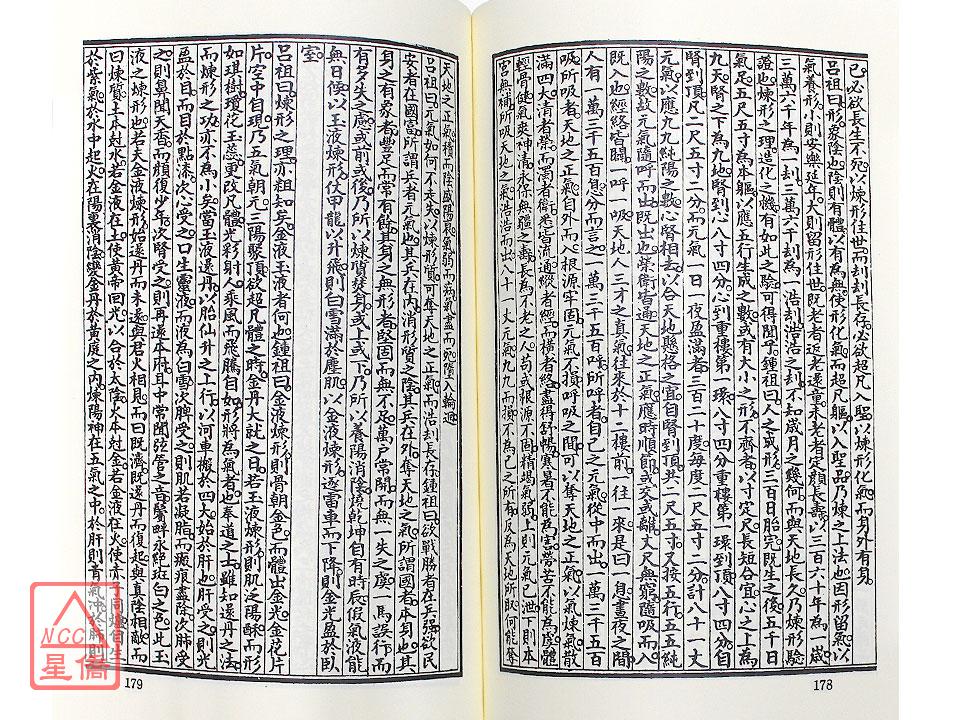 己必欲長生不死以煉形住世而刦刦長存必欲超凡入聖以煉形化氣而身外有身
呂祖曰形象陰也陰則有體以有為無使形化氣而超凡軀以入聖品乃煉之上法也因形留氣以
氣養形小則安樂延年大則留形住世既老者返老還童未老者定顏長壽以三百六十年為一歲
三萬六千年為一刦三萬六千刦為一浩刦浩浩之刦不知歲月之幾何而與天地長久乃煉形驗
證也煉形之理造化之機有如此之驗可得聞乎鍾祖曰人之成形三百日胎完既生之後五千日
氣足五尺五寸為本軀以應五行生成之數或有大小之形不齊者以寸定尺長短合宜心之上為
九天腎之下為九地腎到心八寸四分心到重樓第一環八寸四分重樓第一環到頂八寸四分自
腎到頂凡二尺五寸二分而元氣一日一夜盈滿者三百二十度每度二尺五寸二分計八十一丈
元氣以應九九純陽之數心腎相去以合天地懸格之宜自腎到頂共二尺五寸又按五行五五純
陽之數故元氣隨呼而出既出也榮衛皆通天地之正氣應時順節或交或離丈尺無窮隨吸而入
既入也經絡皆闢一呼一吸天地人三才之真氣往來於十二樓前一往一來是曰一息晝夜之間
人有一萬三千五百息分而言之一萬三千五百呼所呼者自己之元氣從中而出一萬三千五百
吸所吸者天地之正氣自外而入根源牢固元氣不損呼吸之間可以奪天地之正氣以氣煉氣散
滿四大清者榮而濁者衛悉皆流通縱者經而橫者絡盡得舒暢寒暑不能為害勞苦不能為虞體
輕骨健氣爽神清永保無疆之壽長為不老之人苟或根源不固精竭氣弱上則元氣已泄下則本
宮無補所吸天地之正氣浩浩而出八十一丈元氣九九而損不為己之所有反為天地所取何能奪
天地之正氣積而陰盛陽衰氣弱而病氣盡而死墮入輪迴
呂祖曰元氣如何不走失以煉形質可奪天地之正氣而浩刦長存鍾祖曰欲戰勝者在兵強欲民
安者在國富所謂兵者元氣也其兵在內消形質之陰其兵在外奪天地之氣所謂國者本身也其
身之有象者豐足而常有餘其身之無形者堅固而無不足萬戶常開而無一失之虞一馬誤行而
有多多失之慮或前或後乃所以煉質焚身或上或下乃所以養陽消陰燒乾坤自有時辰假氣液能
無日候以玉液煉形仗甲龍以升飛則白雪滿於塵肌以金液煉形逐雷車而下降則金光盈於臥
室
呂祖曰煉形之理亦粗知矣金液玉液者何也鍾祖曰金液煉形則骨朝金色而體出金光金花片
片空中自現乃五氣朝元三陽聚頂欲超凡體之時金丹大就之日若玉液煉形則肌泛陽酥而形
如琪樹瓊花玉蕊更改凡體光彩射人乘風而飛騰自如形將為氣者也奉道之士雖知還丹之法
而煉形之功亦不為小矣當玉液還丹以胎仙升之上行以河車搬於四大始於肝也肝受之則光
盈於目而目於點漆次心受之口生靈液而液為白雪次脾受之則肌若凝脂而瘢痕盡除次肺受
之則鼻聞天香而顏復少年次腎受之則再還本府耳中常聞弦管之音鬢畔永絕斑白之色此玉
液之煉形也若夫金液煉形始還丹而未還與君火相見而曰既濟既還丹而復起與真陰相敵而
曰煉質土本尅水若金液在土使黃帝回光以合於太陰火本尅金若金液在火使赤子同爐自生
於紫氣於水中起火在陽裏消陰變金丹於黃庭之內煉陽神在五氣之中於肝則青氣沖於肺則
178
179
NCC
星僑